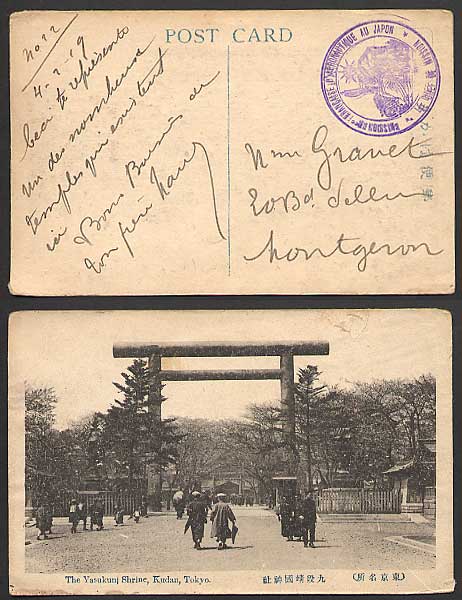 No 22
4-2-19
POST CARD
Ceci te représente
un des nombreux
temples qui existent
ici Bons Baisers de
ton père Nancy
MISSION MILITAIRE FRANÇAISE D'AÉRONAUTIQUE AU JAPON
Mme Gravet
20 Bd
Montgeron
The Yasukuni Shrine, Kudan, Tokyo.
社神國靖段九
（所名京東）